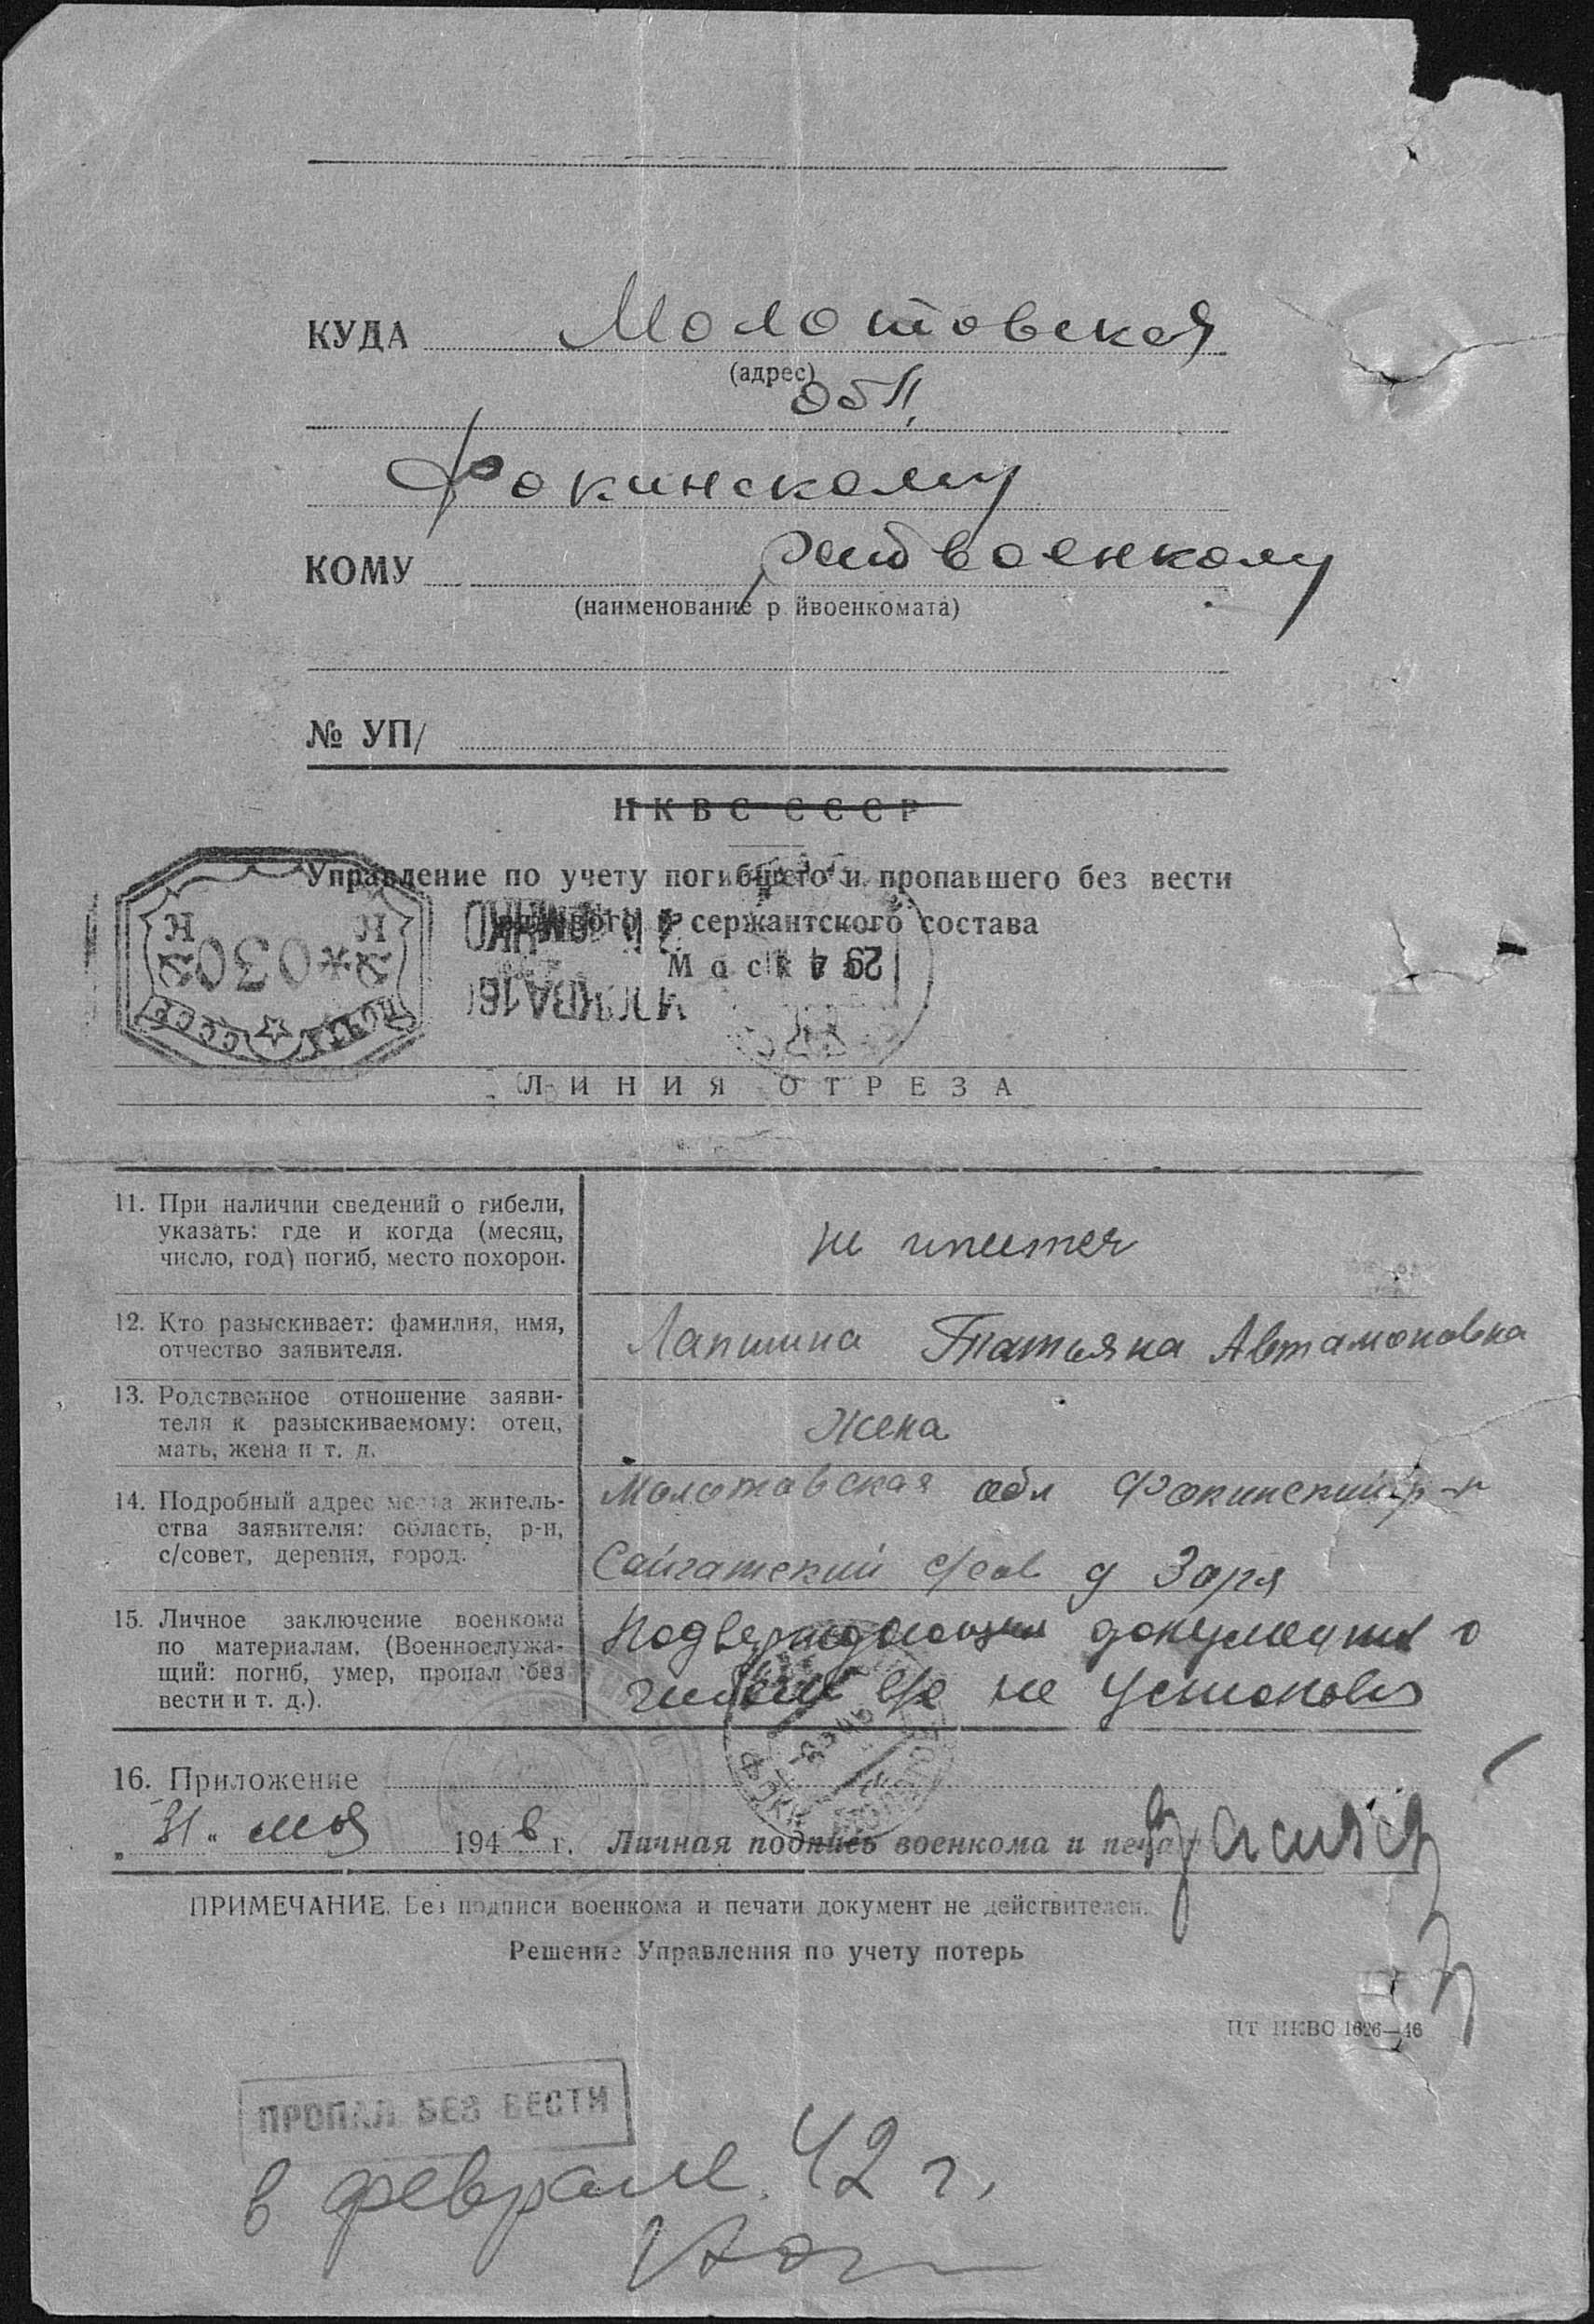 КУДА Молотовская
(адрес)
обл.
Фокинскому
КОМУ райвоенкому
(наименование р йвоенкомата)
№ УП/
НКВС СССР
Управление по учету погибшего и пропавшего без вести
рядового и сержантского состава
Москва
29 4
*030
ПОЧТА СССР
МОСКВА
ЛИНИЯ ОТРЕЗА
11. При наличии сведений о гибели,
указать: где и когда (месяц,
число, год) погиб, место похорон.
не имеется
12. Кто разыскивает: фамилия, имя,
отчество заявителя.
Лапшина Татьяна Автамоновна
13. Родственное отношение заяви-
теля к разыскиваемому: отец,
мать, жена и т. д.
Жена
14. Подробный адрес места житель-
ства заявителя: область, р-н,
с/совет, деревня, город.
Молотовская обл Фокинский р-н
Сайгатский с/сов д Заря
15. Личное заключение военкома
по материалам. (Военнослужа-
щий: погиб, умер, пропал без
вести и т. д.).
документы о
не
16. Приложение
„31“ мая 1946 г. Личная подпись военкома и печать
ПРИМЕЧАНИЕ. Без подписи военкома и печати документ не действителен.
Решение Управления по учету потерь
ЦТ НКВС 1626—46
ПРОПАЛ БЕЗ ВЕСТИ
в феврале 42 г.